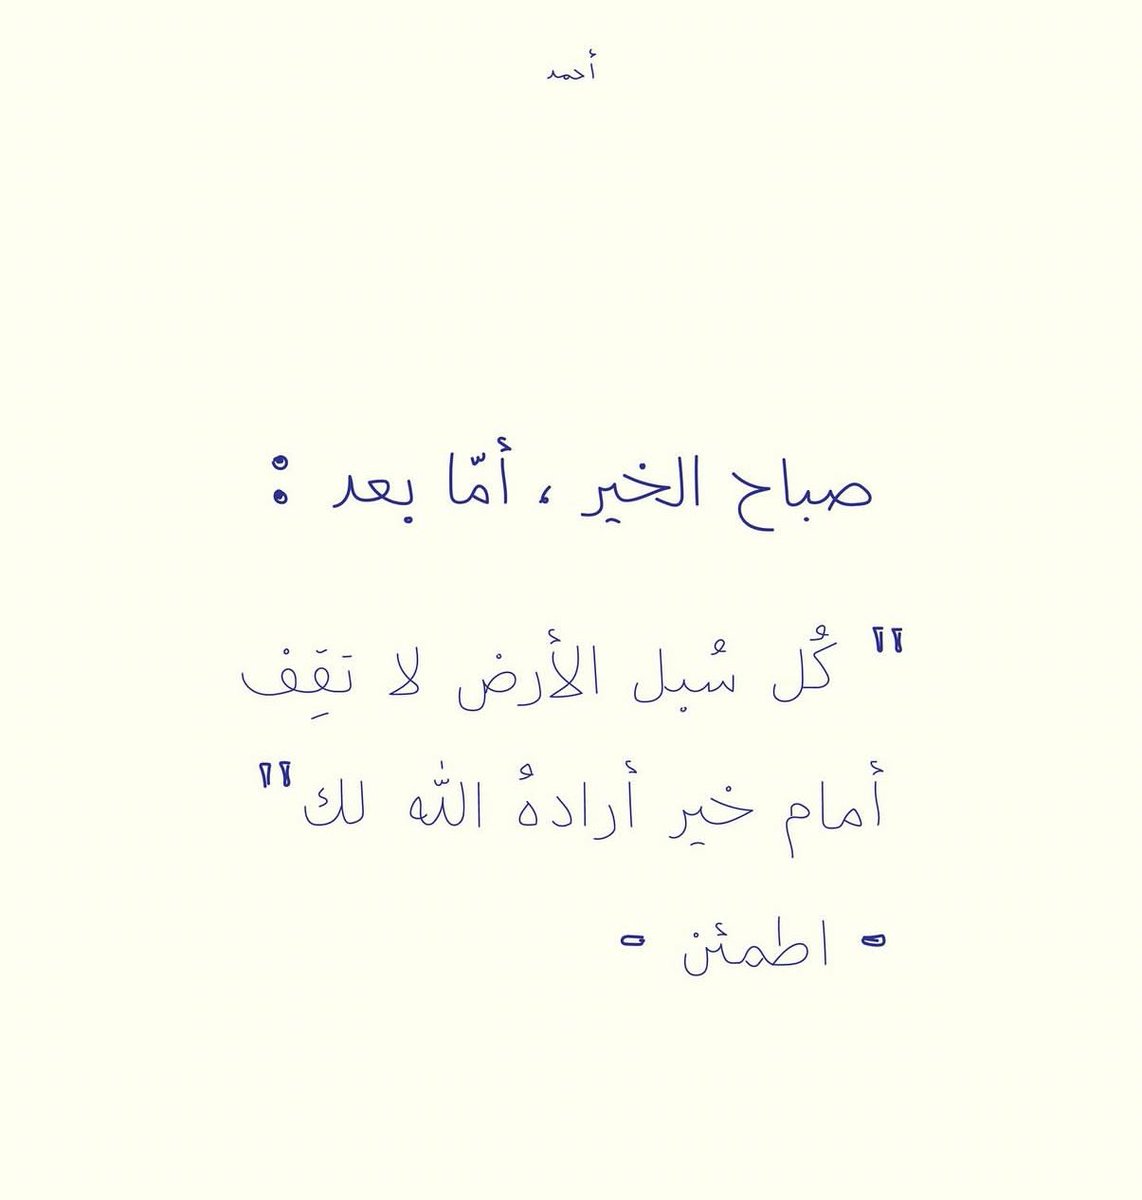 أحمد
صباح الخير ، أمّا بعد :
" كُل سُبل الأرض لا تَقِفْ
أمام خير أرادهُ الله لك"
- اطمئن -